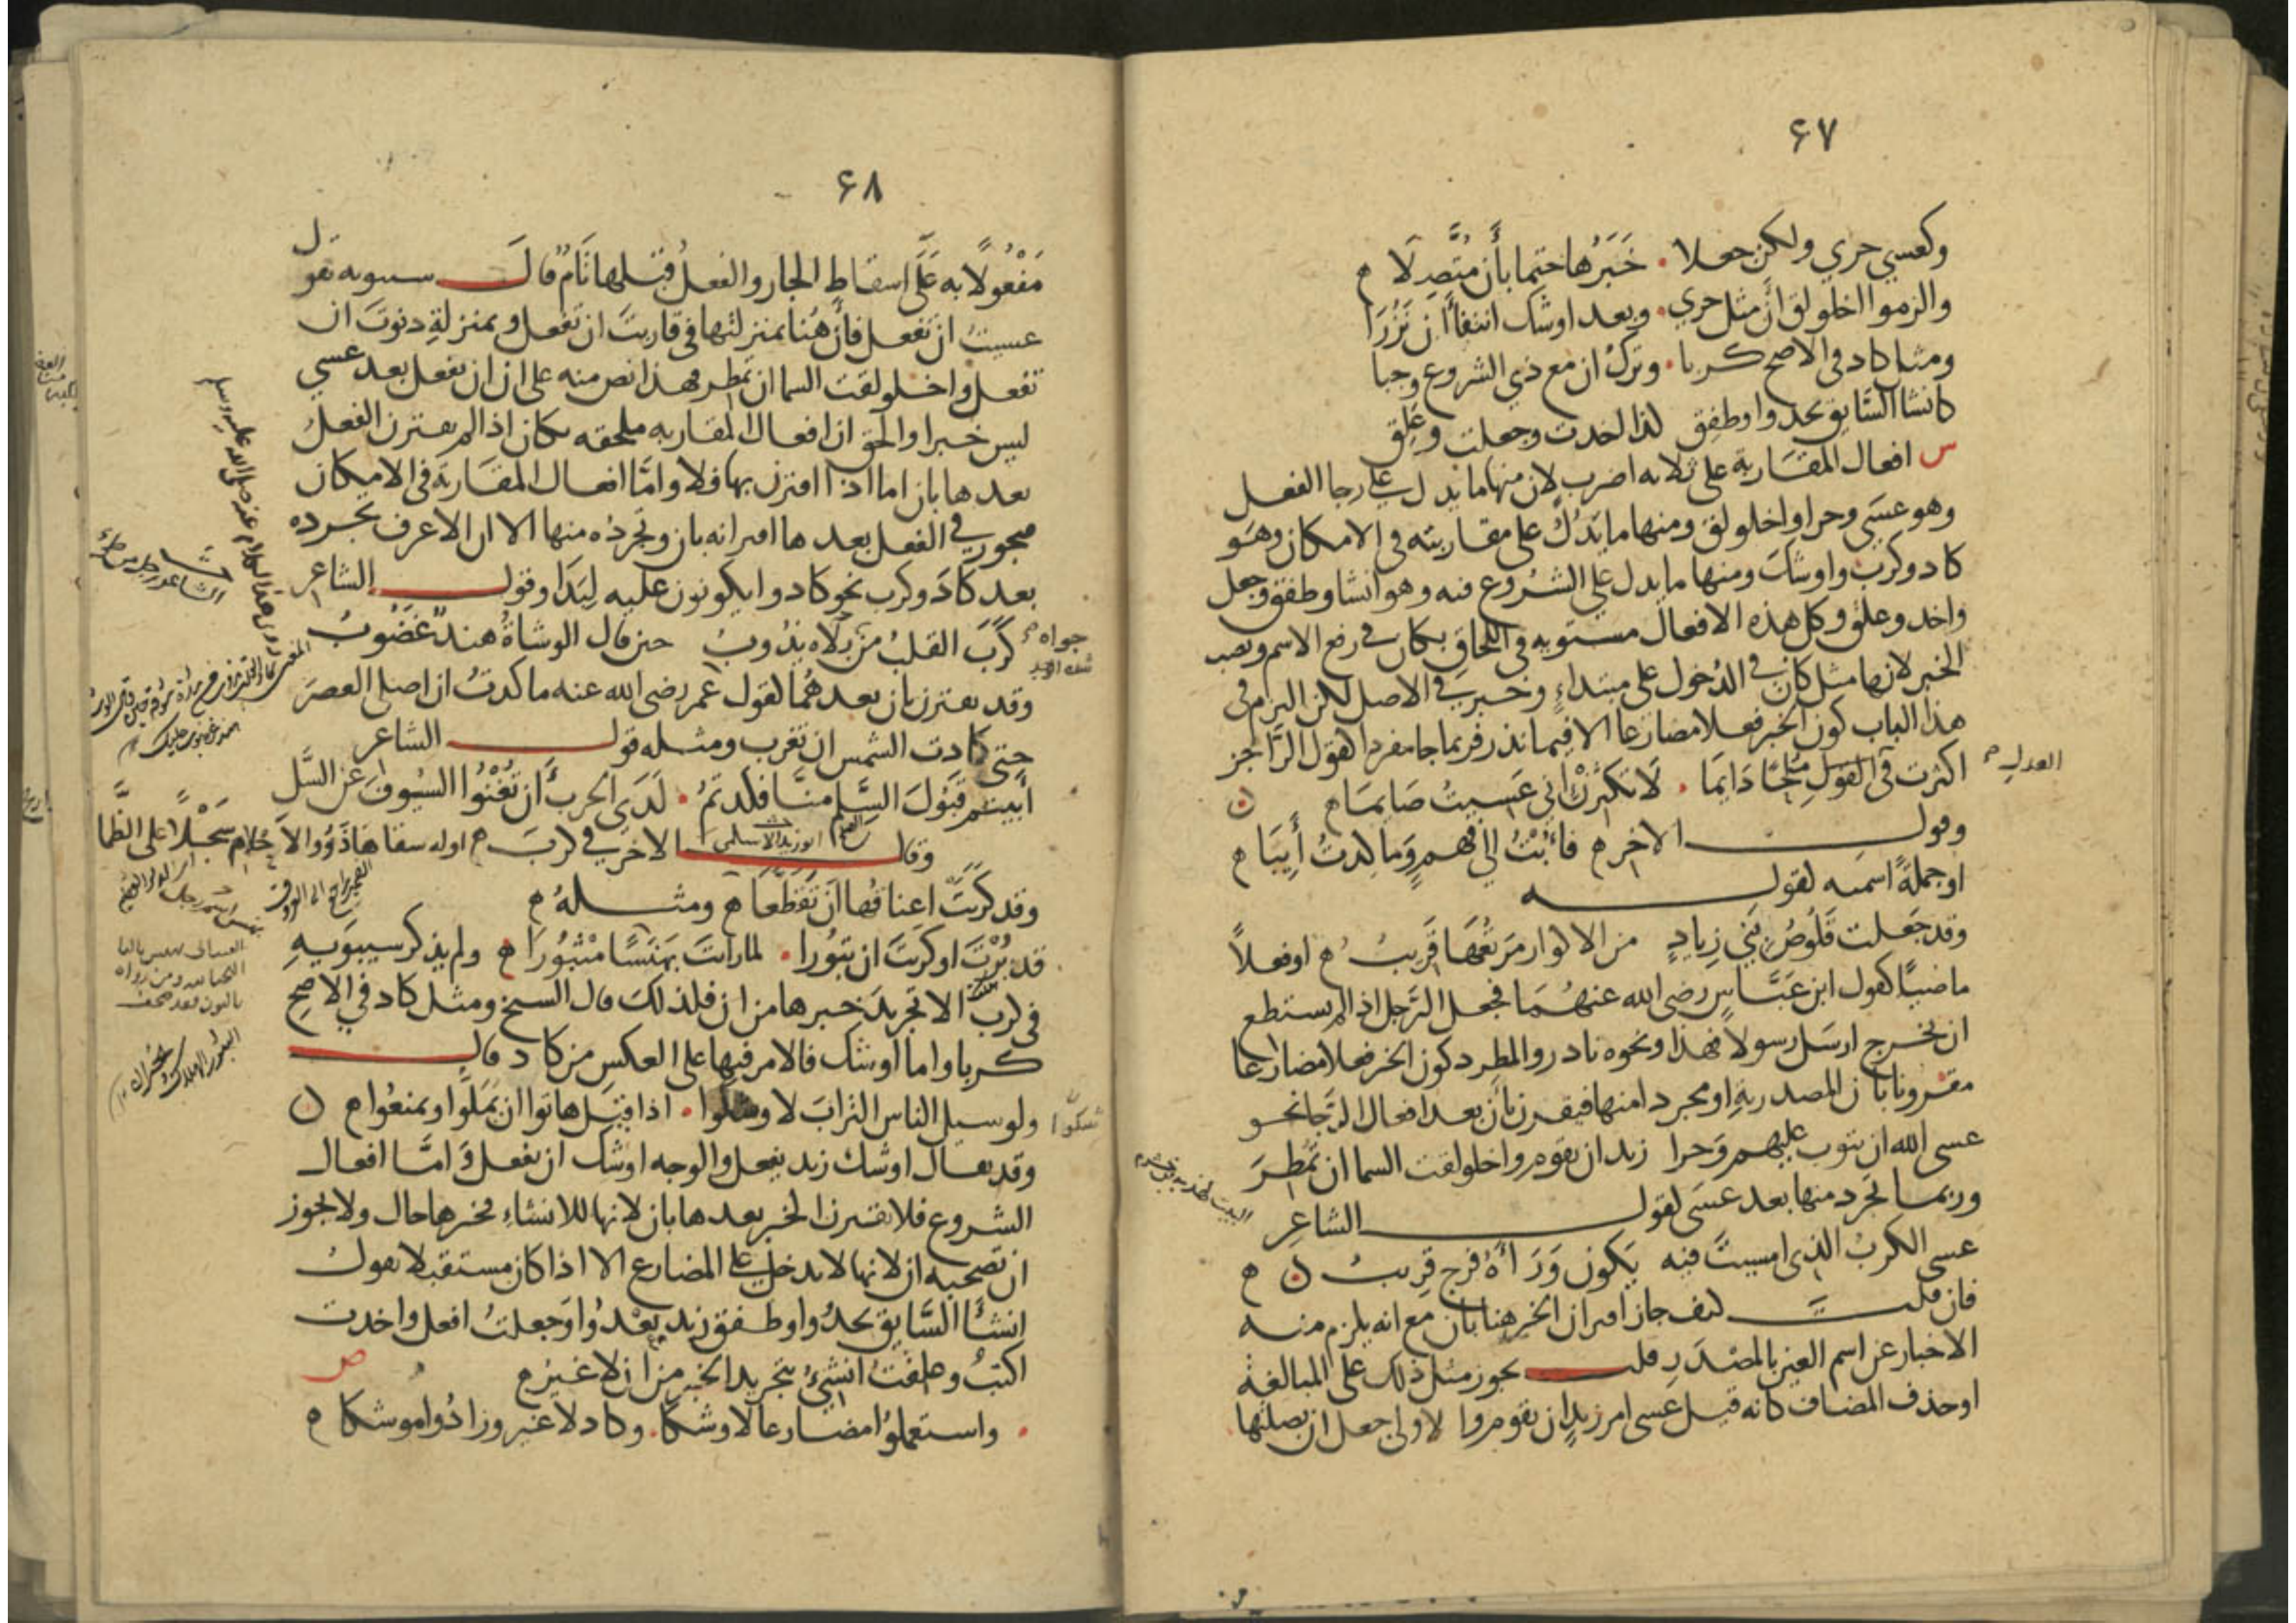 ٦٧
وكعسي حري ولكن جعلا . خبرها حتما بأن متصلا
والزموا اخلولق أن مثل حري . وبعد اوشك انتفا أن نزرا
ومثل كاد في الاصح كربا . وترك ان مع ذي الشروع وجبا
كانشا السايق يحدوا وطفق لذا اخدت وجعلت وعلق
س افعال المقاربة على ثلاثه اضرب لان منها ما يدل على رجا الفعل
وهو عسى وحرا واخلولق ومنها ما يدل على مقاربته في الامكان وهو
كاد وكرب واوشك ومنها ما يدل على الشروع فيه وهو انشا وطفق وجعل
واخد وعلق وكل هذه الافعال مستويه في اللحاق بكان في رفع الاسم ونصب
الخبر لانها مثل كان في الدخول على مبتداء وخبر في الاصل لكن التزم في
هذا الباب كون الخبر فعلا مضارعا الا فيما ندر فربما جا مفردا كقول الراجز
اكثرت في القول ملحا دايما . لا تكثرن اني عسيت صايما
العدل
وقول الاخر فأبت الى فهم وما كدت أيبا
او جملة اسميه كقوله
وقد جعلت قلوص بني زياد من الاكوار مرتعها قريب او فعلا
ماضيا كقول ابن عباس رضى الله عنهما فجعل الرجل اذا لم يستطع
ان يخرج ارسل رسولا فهذا ونحوه نادر والمطرد كون الخبر فعلا مضارعا
مقرونا بان المصدرية او مجردا منها فيقرن بأن بعد افعال الرجا نحو
عسى الله ان يتوب عليهم وحرا زيد ان يقوم واخلولقت السما ان تمطر
وربما تجرد منها بعد عسى كقول الشاعر
عسى الكرب الذى امسيت فيه يكون وراأه فرج قريب
فان قلت كيف جاز اقتران الخبر هنا بان مع انه يلزم منه
الاخبار عن اسم العين بالمصدر قلت يجوز مثل ذلك على المبالغة
او حذف المضاف كانه قيل عسى امر زيد ان يقوم والاولى جعل ان بصلتها
٦٨
مفعولا به على اسقاط الجار والفعل قبلها تام قال سيبويه تقول
عسيت ان تفعل فأن هنا بمنزلتها في قاربت ان تفعل وبمنزلة دنوت ان
تفعل واخلولقت السما ان تمطر فهذا نص منه على ان ان تفعل بعد عسي
ليس خبرا والحق ان افعال المقاربه ملحقه بكان اذا لم يقترن الفعل
بعدها بان اما اذا اقترن بها فلا واما افعال المقاربة في الامكان
فيجوز في الفعل بعدها اقترانه بان وتجرده منها الا ان الاعرف تجرده
بعد كاد وكرب نحو كادوا يكونون عليه لبدا وقول الشاعر
كرب القلب من جواه يذوب حين قال الوشاة هند غضوب
جواه
شدة الوجد
وقد يقترن بان بعدهما كقول عمر رضى الله عنه ما كدت ان اصلى العصر
حتى كادت الشمس ان تغرب ومثله قول الشاعر
أبيتم قبول السلم منا فكدتم . لدى الحرب أن تغنوا السيوف عن السل
وقال الاخر في كرب اوله سقاها ذووا الاحلام سجلا على الظما
ابو زيد الاسلمى
وقد كربت اعناقها ان تقطعا ومثله
قد برت او كربت ان تبورا . لما رايت بيهسا مثبورا ولم يذكر سيبويه
في كرب الا تجريد خبرها من ان فلذلك قال الشيخ ومثل كاد في الاصح
كربا واما اوشك فالامر فيها على العكس من كاد قال
ولو سيل الناس التراب لاوشكوا . اذا قيل هاتوا ان يملوا ويمنعوا
شكوا
وقد يقال اوشك زيد يفعل والوجه اوشك ان يفعل واما افعال
الشروع فلا يقترن الخبر بعدها بان لانها للانشاء فخبرها حال ولا يجوز
ان تصحبه ان لانها لا يدخل على المضارع الا اذا كان مستقبلا تقول
انشأ السايق يحدوا وطفق زيد يعدوا وجعلت افعل واخدت
اكتب وعلقت انشئ بتجريد الخبر من ان لا غير
ص
. واستعملوا مضارعا لاوشكا . وكاد لا غير وزادوا موشكا